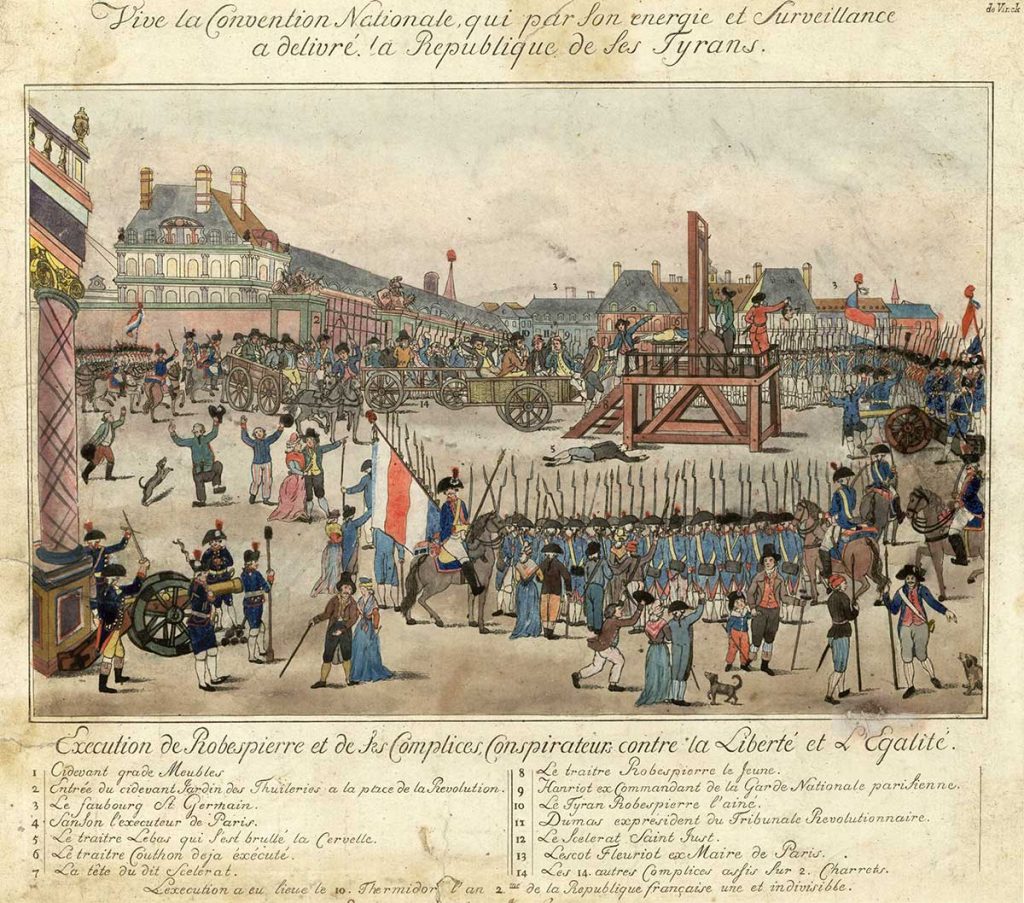 Vive la Convention Nationale, qui par son energie et Surveillance
de Vinck
a delivré la Republique de ses Tyrans.
2
3
3
14
5
Execution de Robespierre et de ses Complices, Conspirateurs contre la Liberté et L'Egalité.
1 Cidevant grade Meubles
2 Entrée du cidevant Jardin des Thuileries a la place de la Revolution.
3 Le faubourg St Germain.
4 Sanson l'executeur de Paris.
5 Le traitre Lebas qui s'est brullé la Cervelle.
6 Le traitre Couthon deja exécuté.
7 La tête du dit Scelerat.
8 Le traitre Robespierre le Jeune.
9 Hanriot ex Commandant de la Garde Nationale parisienne.
10 Le Tyran Robespierre l'ainé.
11 Dumas exprésident du Tribunale Revolutionnaire.
12 Le Scelerat Saint Just.
13 Lescot Fleuriot ex Maire de Paris.
14 Les 14 autres Complices assis sur 2. Charrets.
L'execution a eu lieue le 10. Thermidor l'an 2me de la Republique française une et indivisible.